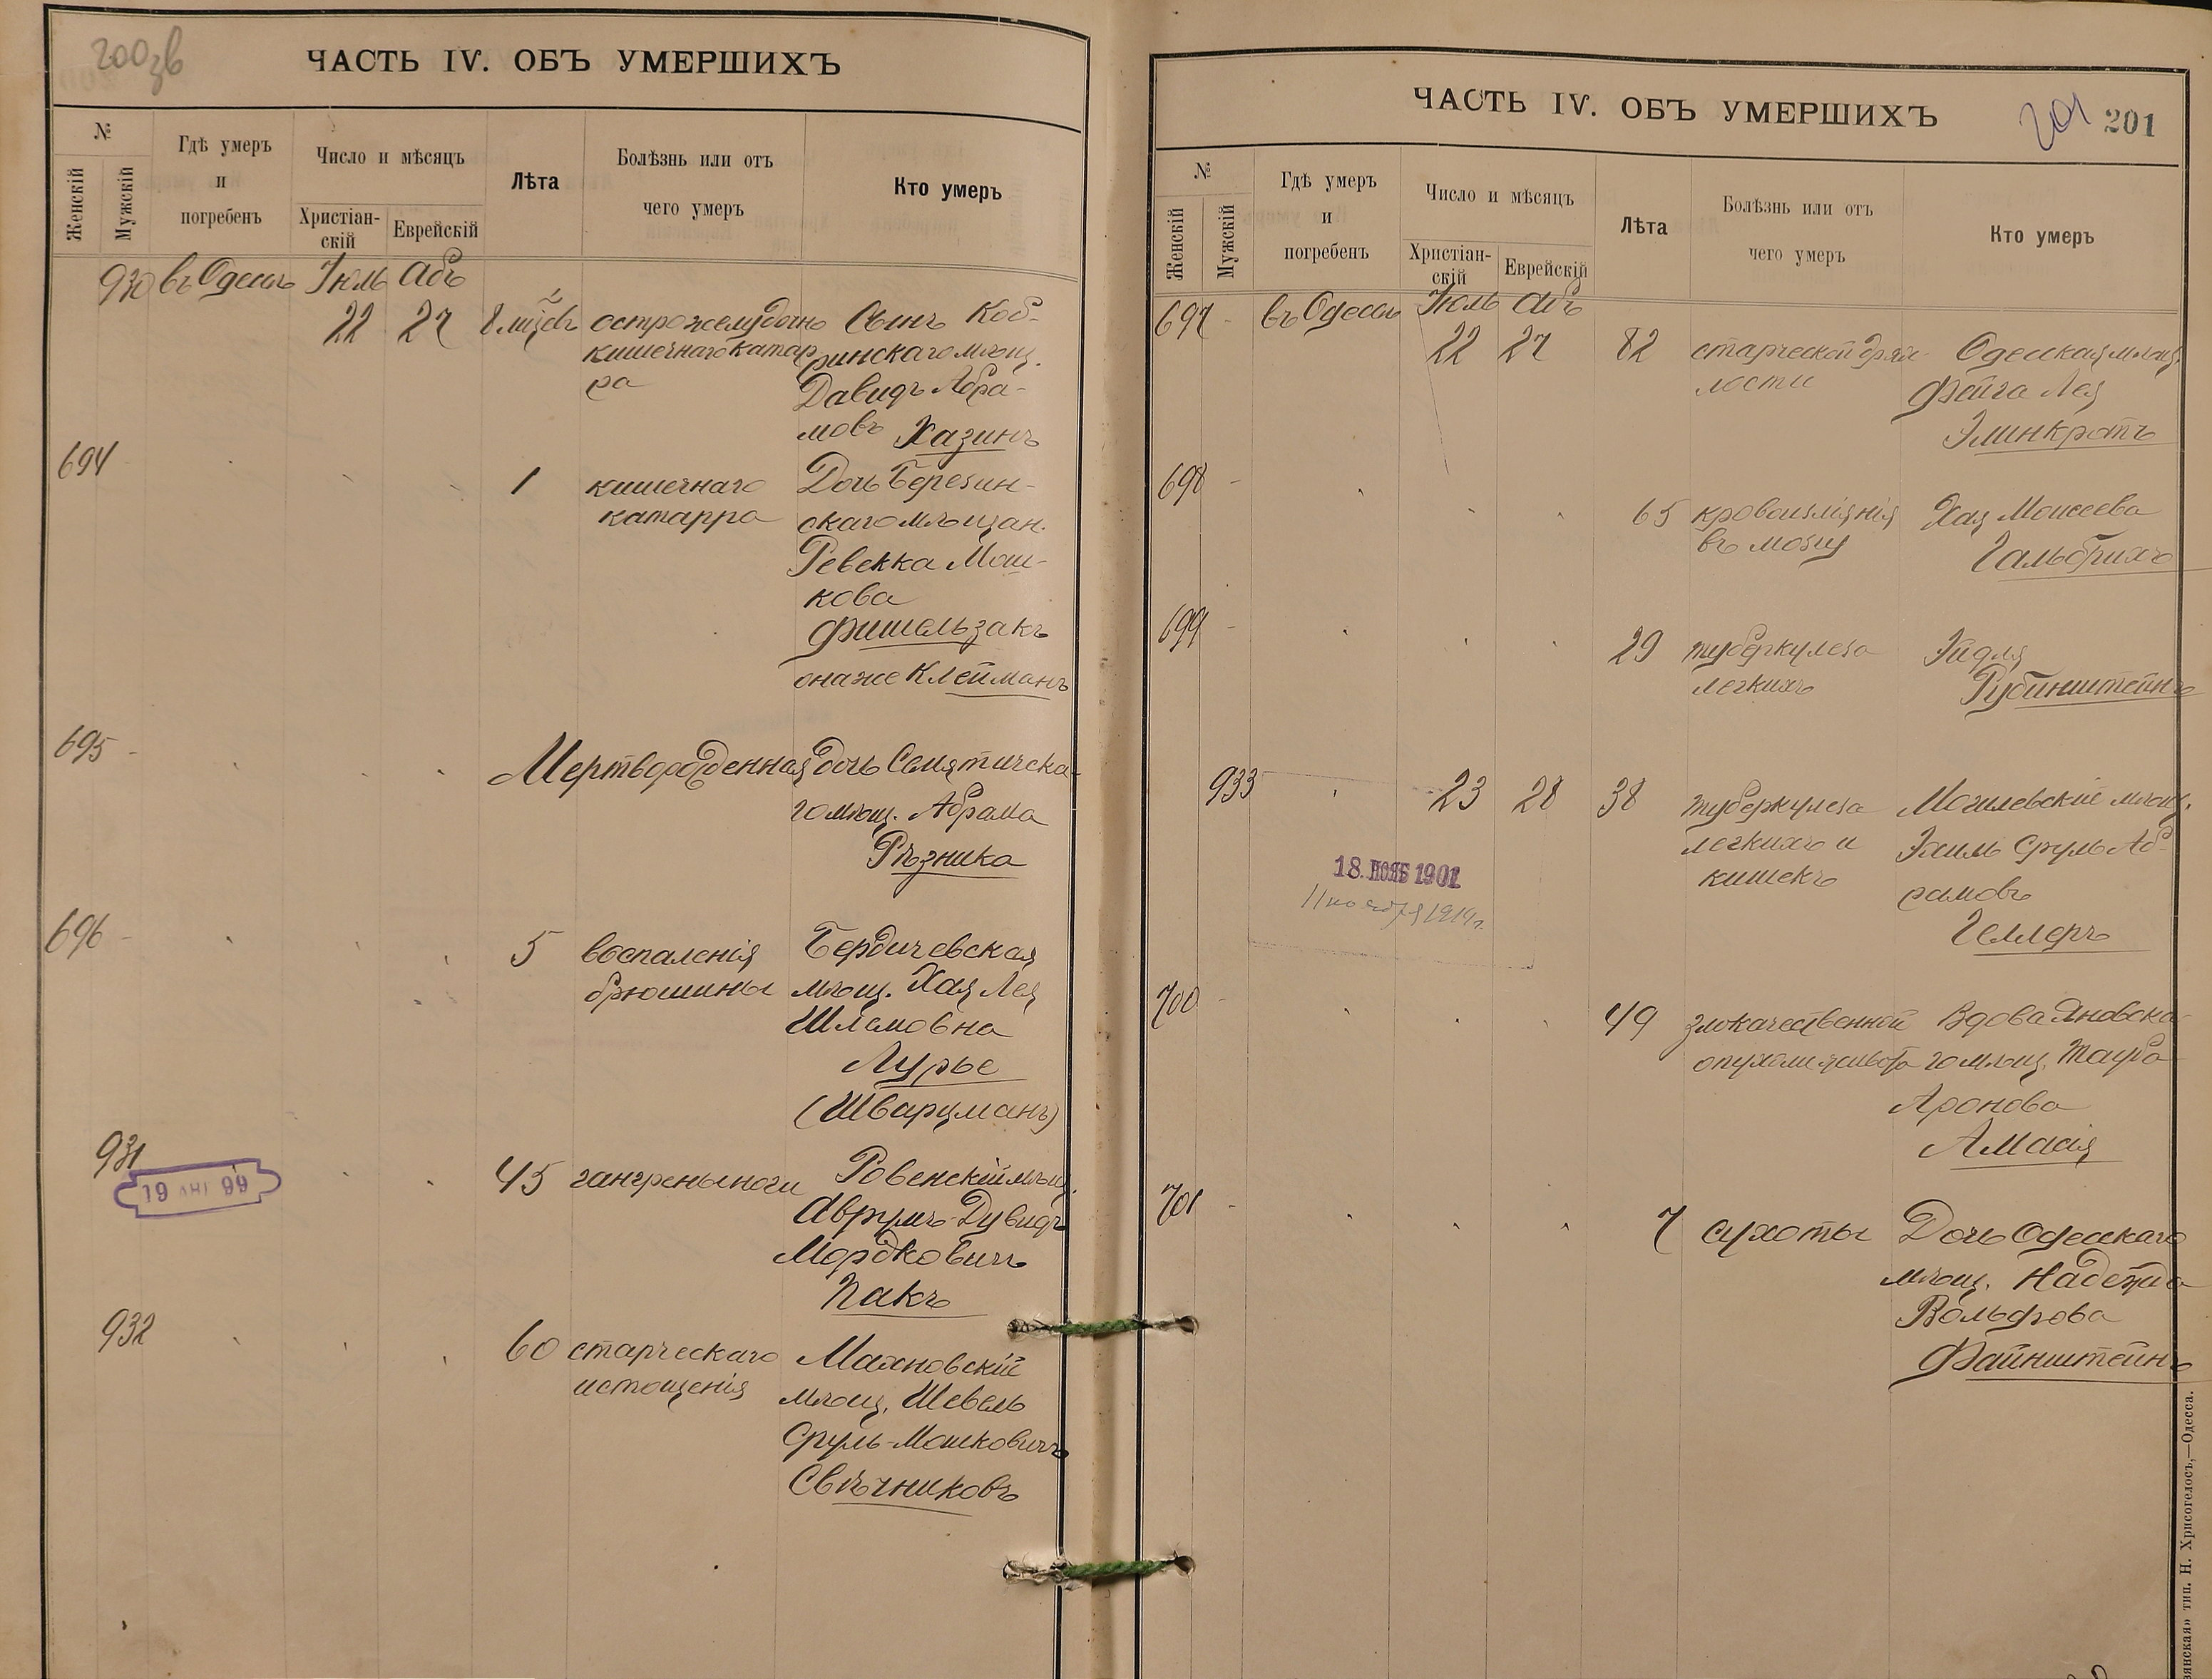 200зв
ЧАСТЬ IV. ОБЪ УМЕРШИХЪ
№
Женскій
Мужскій
Гдѣ умеръ
и
погребенъ
Число и мѣсяцъ
Христіан-
скій
Еврейскій
Лѣта
Болѣзнь или отъ
чего умеръ
Кто умеръ
930 въ Одессѣ Іюль Абъ
22 27 8 мцѣвъ острожелудочно Сынъ Коб-
кишечнаго катар ринскаго мѣщ.
ра Давидъ Абра-
мовъ Хазинъ
694 1 кишечнаго Дочь Березин-
катарра скаго мѣщан.
Ревекка Мош-
кова
Фишельзакъ
она же Клейманъ
695 Мертворожденная дочь Семятическа-
го мѣщ. Абрама
Рѣзника
696 5 воспаленія Бердичевская
брюшины мѣщ. Хая Лея
Шлемовна
Лурье
(Шварцманъ)
931 45 гангрены ноги Ровенскій мѣщ.
19 АВГ 99
Аврумъ-Дувидъ
Мордковичъ
Пакъ
932 60 старческаго Махновскій
истощенія мѣщ. Шевель
Сруль-Мошковичъ
Свѣчниковъ
ЧАСТЬ IV. ОБЪ УМЕРШИХЪ
201 201
№
Женскій
Мужскій
Гдѣ умеръ
и
погребенъ
Число и мѣсяцъ
Христіан-
скій
Еврейскій
Лѣта
Болѣзнь или отъ
чего умеръ
Кто умеръ
697 въ Одессѣ Іюль Абъ
22 27 82 старческой дрях- Одесская мѣщ.
лости Фейга Лея
Элинкротъ
698 65 кровоизліянія Хая Моисеева
въ мозгу Гальбрихъ
699 29 туберкулеза Эйдля
легкихъ Рубинштейнъ
933 23 28 38 туберкулеза Могилевскій мѣщ.
легкихъ и Эхиль Сруль Аб-
кишекъ рамовъ
Геллеръ
18 НОЯБ 1901
11 ноября 1914г.
700 49 злокачественной Вдова Яновска-
опухоли живота го мѣщ. Тауба
Аронова
Амасія
701 7 сухоты Дочь Одесскаго
мѣщ. Надежда
Вольфова
Файнштейнъ
тип. Н. Хрисогелосъ,—Одесса.